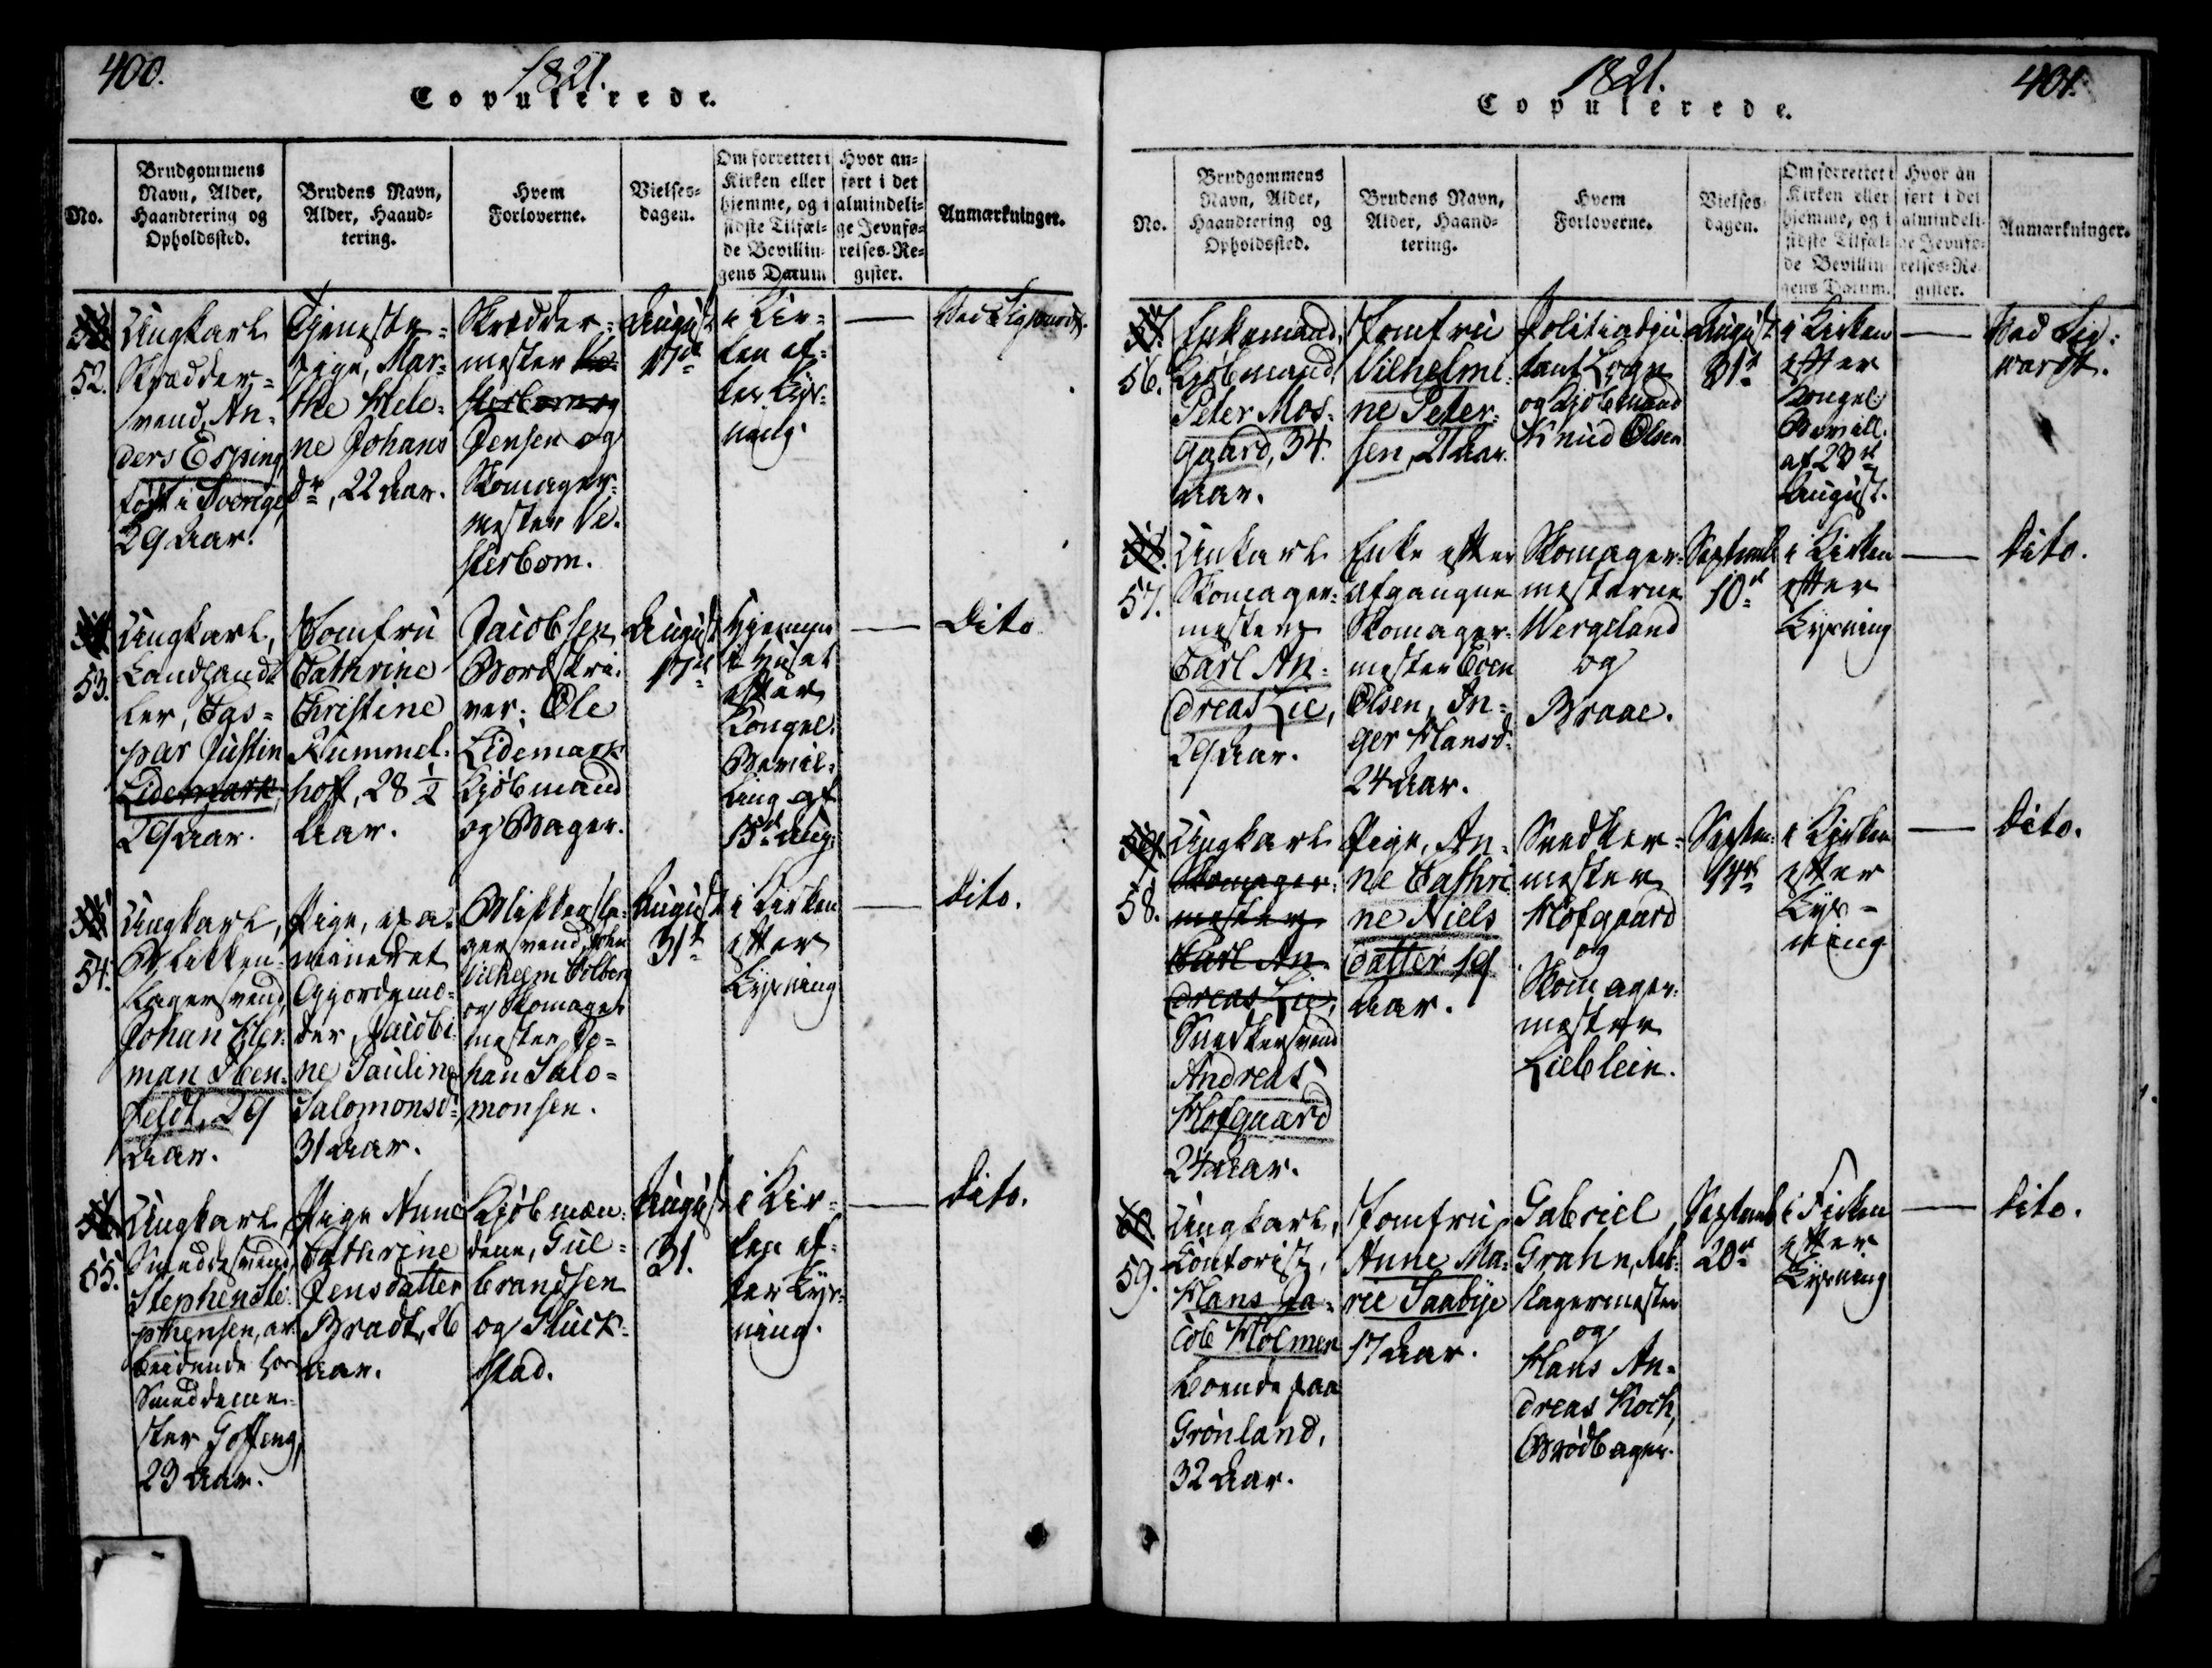 400.
1821.
Copulerede.
No.
Brudgommens
Navn, Alder,
Haandtering og
Opholdssted.
Brudens Navn,
Alder, Haand-
tering.
Hvem
Forloverne.
Vielses-
dagen.
Om forrettet i
Kirken eller
hjemme, og i
sidste Tilfæl-
de Bevillin-
gens Datum
Hvor an-
ført i det
almindeli-
ge Jevnfø-
relses-Re-
gister.
Anmærkninger.
52.
Ungkarl
Skrædder-
svend, An-
ders Esping
født i Sverige,
29 Aar.
Tjeneste-
Pige, Mar-
the Hele-
ne Johans
dr, 22 Aar.
Skrædder-
mester
Jensen og
Skomager-
mester Ve-
sterbom.
August
17de
i Kir-
ken ef-
ter Lys-
ning.
—
53.
Ungkarl,
Landhand-
ler, Cas-
par Justin
Lidemark,
29 Aar.
Jomfru
Cathrine
Christine
Kummel-
hoff, 28 1/2
Aar.
Jacobsen
Bordskri-
ver; Ole
Lidemark
Kjøbmand
og Bager.
August
17de
Hjemme
i Huset
efter
Kongel.
Bevil-
ling af
15de Aug.
—
Dito
54.
Ungkarl,
Blikken-
slagersvend,
Johan Her-
man Iben-
feldt, 29
Aar.
Pige, exa-
mineret
Gjordemo-
der, Jacobi-
ne Pauline
Salomonsd.,
31 Aar.
Blikkensla-
gersvend John
Vilhelm Holberg
og Skomager
mester Jo-
han Salo-
monsen.
August
31te
i Kirken
efter
Lysning
—
dito.
55.
Ungkarl
Smeddesvend,
Stephen Ste-
phensen, ar-
beidende hos
Smeddeme-
ster Goffeng,
23 Aar.
Pige Anne
Cathrine
Jensdatter
Bradt, 26
Aar.
Kjøbmæn-
dene, Gul-
brandsen
og Stuck-
stad.
August
31.
i Kir-
ken ef-
ter Lys-
ning.
—
dito.
1821.
401.
Copulerede.
No.
Brudgommens
Navn, Alder,
Haandtering og
Opholdssted.
Brudens Navn,
Alder, Haand-
tering.
Hvem
Forloverne.
Vielses-
dagen.
Om forrettet i
Kirken eller
hjemme, og i
sidste Tilfæl-
de Bevillin-
gens Datum.
Hvor an
ført i det
almindeli-
ge Jevnfø-
relses-Re-
gister.
Anmærkninger.
56.
Enkemand,
Kjøbmand,
Peter Mos-
gaard, 34
Aar.
Jomfru
Vilhelmi-
ne Peter-
sen, 21 Aar.
Politiadju
tant
og Kjøbmand
Knud Olsen
August
31te
i Kirken
efter
Kongel.
Bevill.
af 23de
August.
—
57.
Unkarl
Skomager-
mester
Carl An-
dreas Lie,
29 Aar.
Enke efter
afgangne
Skomager-
mester Even
Olsen, In-
ger Hansd.
24 Aar.
Skomager-
mesterne
Wergeland
og
Braae.
Septemb
10de
i Kirken
efter
Lysning
—
dito.
58.
Ungkarl
Skomager-
mester
Carl An-
dreas Lie,
Snedkersvend
Andreas
Hofgaard
24 Aar.
Pige, An-
ne Cathri
ne Niels
datter 19
Aar.
Snedker-
mester
Hofgaard
og
Skomager-
mester
Lieblein.
Septem.
14de
i Kirken
efter
Lys-
ning
—
dito.
59.
Ungkarl,
Contorist,
Hans Ja-
cob Holmen
boende paa
Grønland,
32 Aar.
Jomfru
Anne Ma-
rie Saabye
17 Aar.
Gabriel
Grahn,
slagermester
og
Hans An-
dreas Koch,
Brødbager.
Septemb
20de
i Kirken
efter
Lysning
—
dito.